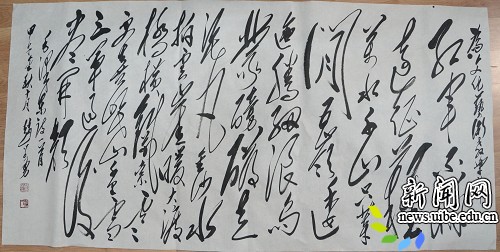 红军不怕
远征难
万水千山只等
闲五岭逶
迤腾细浪乌
蒙磅礴走
泥丸金沙水
拍云崖暖大渡
桥横铁索寒
更喜岷山千里雪
三军过后
尽开颜
毛泽东
新闻网
news.ube.edu.cn